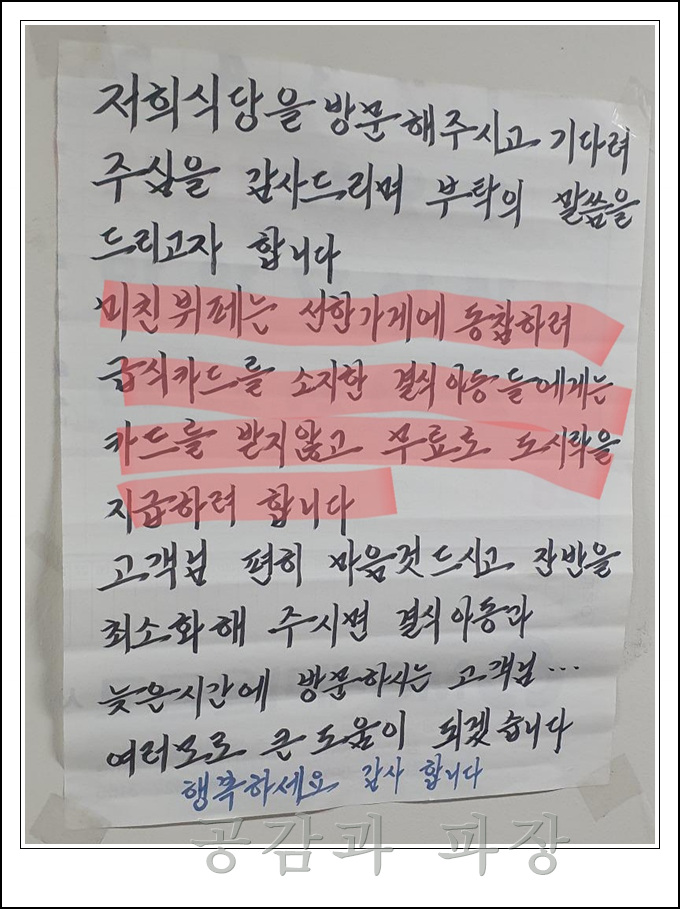 저희식당을 방문해주시고 기다려
주심을 감사드리며 부탁의 말씀을
드리고자 합니다
미친뷔페는 선한가게에 동참하려
급식카드를 소지한 결식아동들에게는
카드를 받지않고 무료로 도시락을
지급하려 합니다
고객님 편히 마음것드시고 잔반을
최소화해 주시면 결식아동과
늦은시간에 방문하시는 고객님...
여러모로 큰도움이 되겠습니다
행복하세요 감사 합니다
공감과 파장